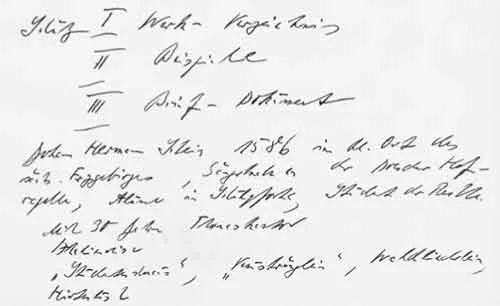 Schütz I Werk-Verzeichnis
II Beispiele
III Brief-Dokument
Johan Herman Schein 1586 im kl. Ort des
sächs. Erzgebirges, Sängerknabe der Dresdner Hof-
kapelle, Alumne in Schulpforta, Student der Rechte.
Mit 30 Jahren Thomaskantor
„Studentenschmaus“, „Venuskränzlein“, Waldliederlein,
Hirtenlust